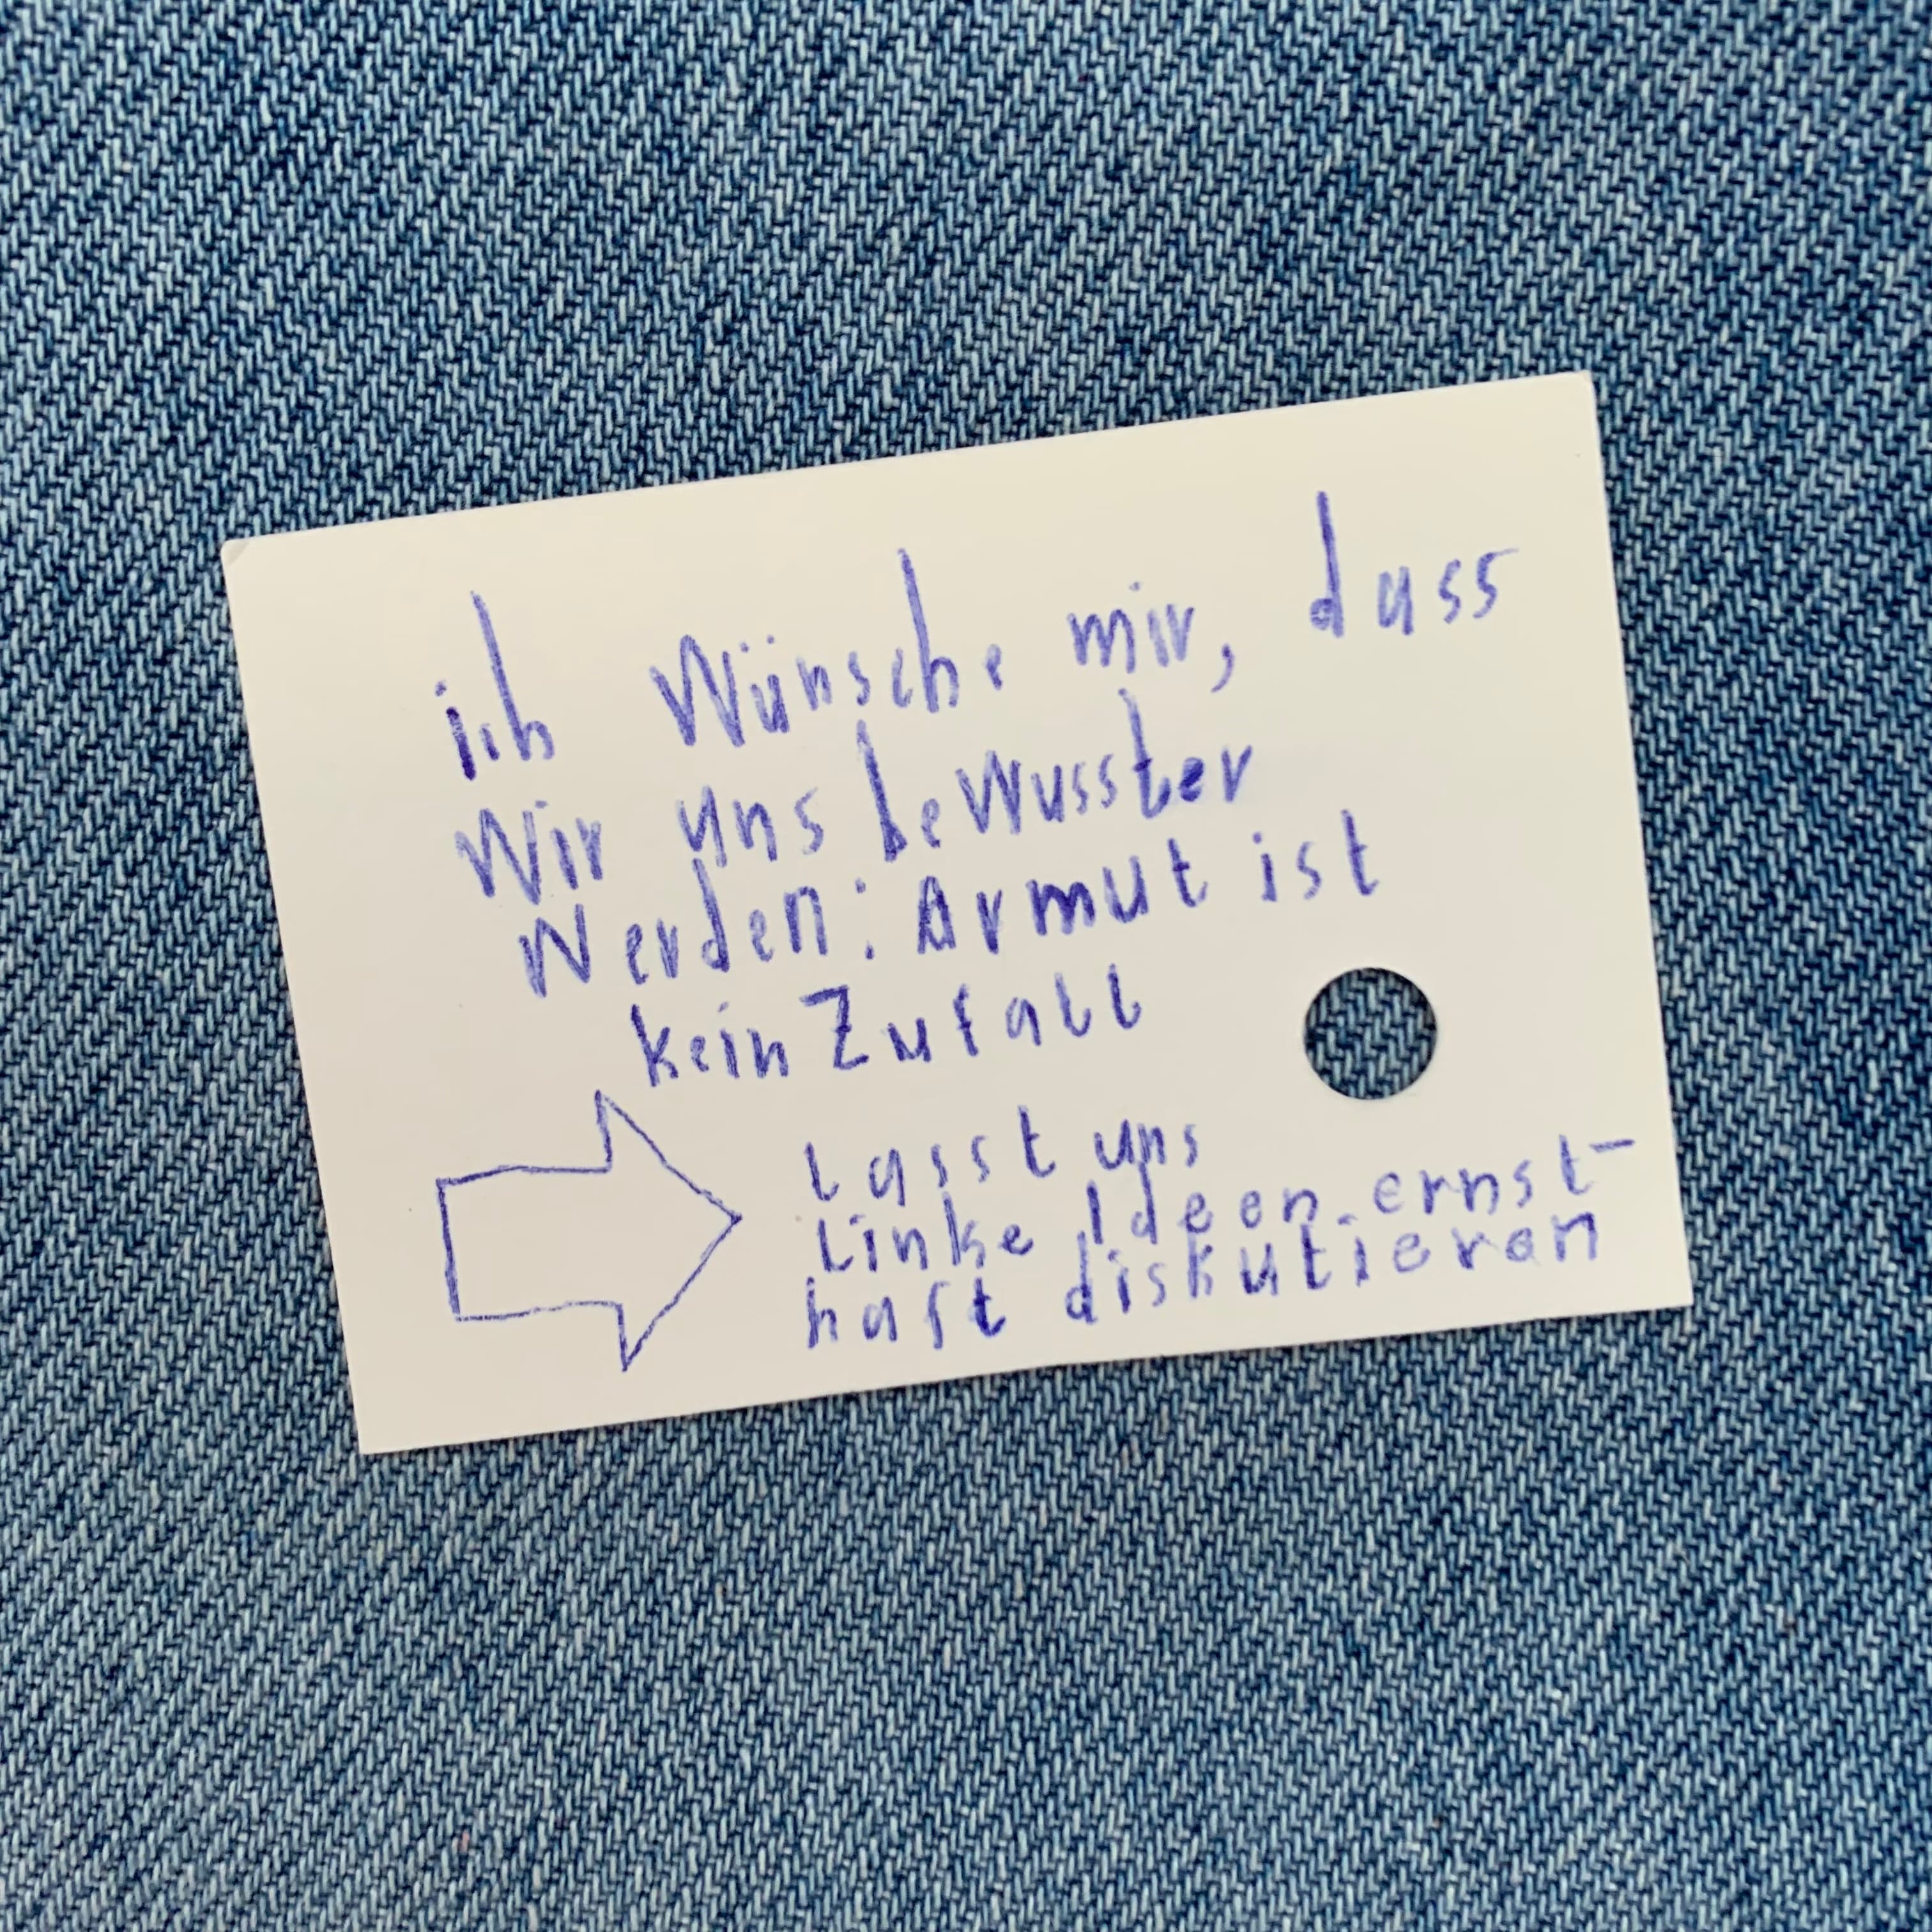 ich Wünsche mir, dass
Wir uns beWusster
Werden: Armut ist
kein Zufall
Lasst uns
Linke Ideen ernst-
haft diskutieren